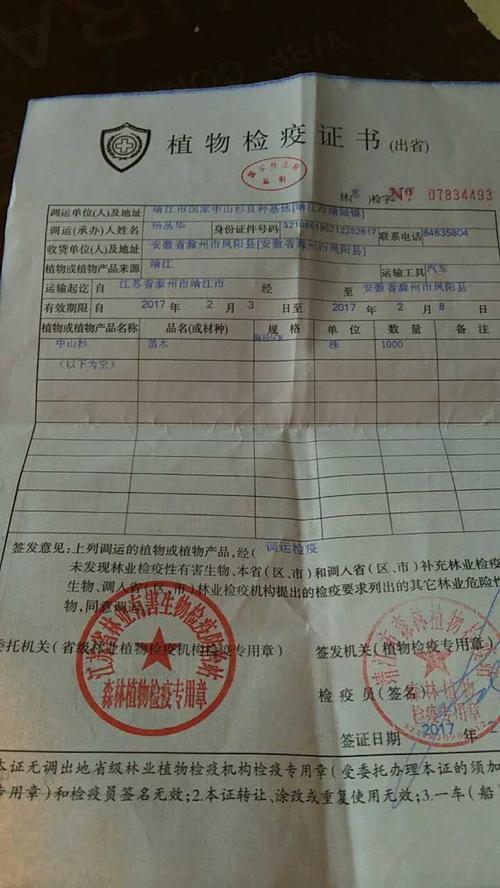 植物检疫证书(出省)
林(苏)检字 № 07834493
调运单位(人)及地址 靖江市国家中山杉良种基地[靖江市靖城镇]
调运(承办)人姓名 杨丛华 身份证件号码 321086196212252617 联系电话 84835804
收货单位(人)及地址 安徽省滁州市凤阳县[安徽省滁州市凤阳县]
植物或植物产品来源 靖江 运输工具 汽车
运输起讫 自 江苏省泰州市靖江市 经 至 安徽省滁州市凤阳县
有效期限 自 2017 年 2 月 3 日至 2017 年 2 月 8 日
植物或植物产品名称 品名(或材种) 规格 单位 数量 备注
中山杉 苗木 株 1000
(以下为空)
签发意见:上列调运的植物或植物产品,经( 调运检疫
未发现林业检疫性有害生物、本省(区、市)和调入省(区、市)补充林业检疫
生物、调入省(区、市)林业检疫机构提出的检疫要求列出的其它林业危险性
物,同意调运。
委托机关(省级林业植物检疫机构检疫专用章) 签发机关(植物检疫专用章)
江苏省林业有害生物检疫防治站
森林植物检疫专用章
靖江市森林植物检
森林植物
检疫专用章
检疫员(签名)
签证日期 2017 年 2
本证无调出地省级林业植物检疫机构检疫专用章(受委托办理本证的须加
专用章)和检疫员签名无效;2.本证转让、涂改或重复使用无效;3.一车(船